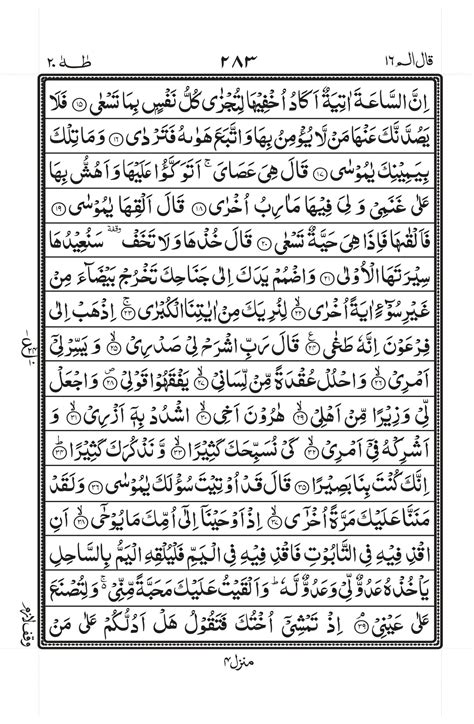 قال الم ١٦ ٢٨٣ طٰهٰ ٢٠
اِنَّ السَّاعَةَ اٰتِيَةٌ اَكَادُ اُخْفِيْهَا لِتُجْزٰى كُلُّ نَفْسٍۭ بِمَا تَسْعٰى ﴿۱۵﴾ فَلَا
يَصُدَّنَّكَ عَنْهَا مَنْ لَّا يُؤْمِنُ بِهَا وَاتَّبَعَ هَوٰىهُ فَتَرْدٰى ﴿۱۶﴾ وَمَا تِلْكَ
بِيَمِيْنِكَ يٰمُوْسٰى ﴿۱۷﴾ قَالَ هِيَ عَصَايَ ۚ اَتَوَكَّؤُا عَلَيْهَا وَاَهُشُّ بِهَا
عَلٰى غَنَمِيْ وَ لِيَ فِيْهَا مَاٰرِبُ اُخْرٰى ﴿۱۸﴾ قَالَ اَلْقِهَا يٰمُوْسٰى ﴿۱۹﴾
فَاَلْقٰىهَا فَاِذَا هِيَ حَيَّةٌ تَسْعٰى ﴿۲۰﴾ قَالَ خُذْهَا وَلَا تَخَفْ ۥ سَنُعِيْدُهَا
سِيْرَتَهَا الْاُوْلٰى ﴿۲۱﴾ وَاضْمُمْ يَدَكَ اِلٰى جَنَاحِكَ تَخْرُجْ بَيْضَآءَ مِنْ
غَيْرِ سُوْٓءٍ اٰيَةً اُخْرٰى ﴿۲۲﴾ لِنُرِيَكَ مِنْ اٰيٰتِنَا الْكُبْرٰى ﴿۲۳﴾ اِذْهَبْ اِلٰى
فِرْعَوْنَ اِنَّهٗ طَغٰى ﴿۲۴﴾ قَالَ رَبِّ اشْرَحْ لِيْ صَدْرِيْ ﴿۲۵﴾ وَ يَسِّرْ لِيْٓ
اَمْرِيْ ﴿۲۶﴾ وَاحْلُلْ عُقْدَةً مِّنْ لِّسَانِيْ ﴿۲۷﴾ يَفْقَهُوْا قَوْلِيْ ﴿۲۸﴾ وَاجْعَلْ
لِّيْ وَزِيْرًا مِّنْ اَهْلِيْ ﴿۲۹﴾ هٰرُوْنَ اَخِي ﴿۳۰﴾ اشْدُدْ بِهٖٓ اَزْرِيْ ﴿۳۱﴾ وَ
اَشْرِكْهُ فِيْٓ اَمْرِيْ ﴿۳۲﴾ كَيْ نُسَبِّحَكَ كَثِيْرًا ﴿۳۳﴾ وَّ نَذْكُرَكَ كَثِيْرًا ﴿۳۴﴾
اِنَّكَ كُنْتَ بِنَا بَصِيْرًا ﴿۳۵﴾ قَالَ قَدْ اُوْتِيْتَ سُؤْلَكَ يٰمُوْسٰى ﴿۳۶﴾ وَلَقَدْ
مَنَنَّا عَلَيْكَ مَرَّةً اُخْرٰٓى ﴿۳۷﴾ اِذْ اَوْحَيْنَآ اِلٰٓى اُمِّكَ مَا يُوْحٰٓى ﴿۳۸﴾ اَنِ
اقْذِفِيْهِ فِي التَّابُوْتِ فَاقْذِفِيْهِ فِي الْيَمِّ فَلْيُلْقِهِ الْيَمُّ بِالسَّاحِلِ
يَاْخُذْهُ عَدُوٌّ لِّيْ وَعَدُوٌّ لَّهٗ ؕ وَاَلْقَيْتُ عَلَيْكَ مَحَبَّةً مِّنِّيْ ۚ۬ وَلِتُصْنَعَ
عَلٰى عَيْنِيْ ﴿۳۹﴾ اِذْ تَمْشِيْٓ اُخْتُكَ فَتَقُوْلُ هَلْ اَدُلُّكُمْ عَلٰى مَنْ
وقف لازم
منزل ۴